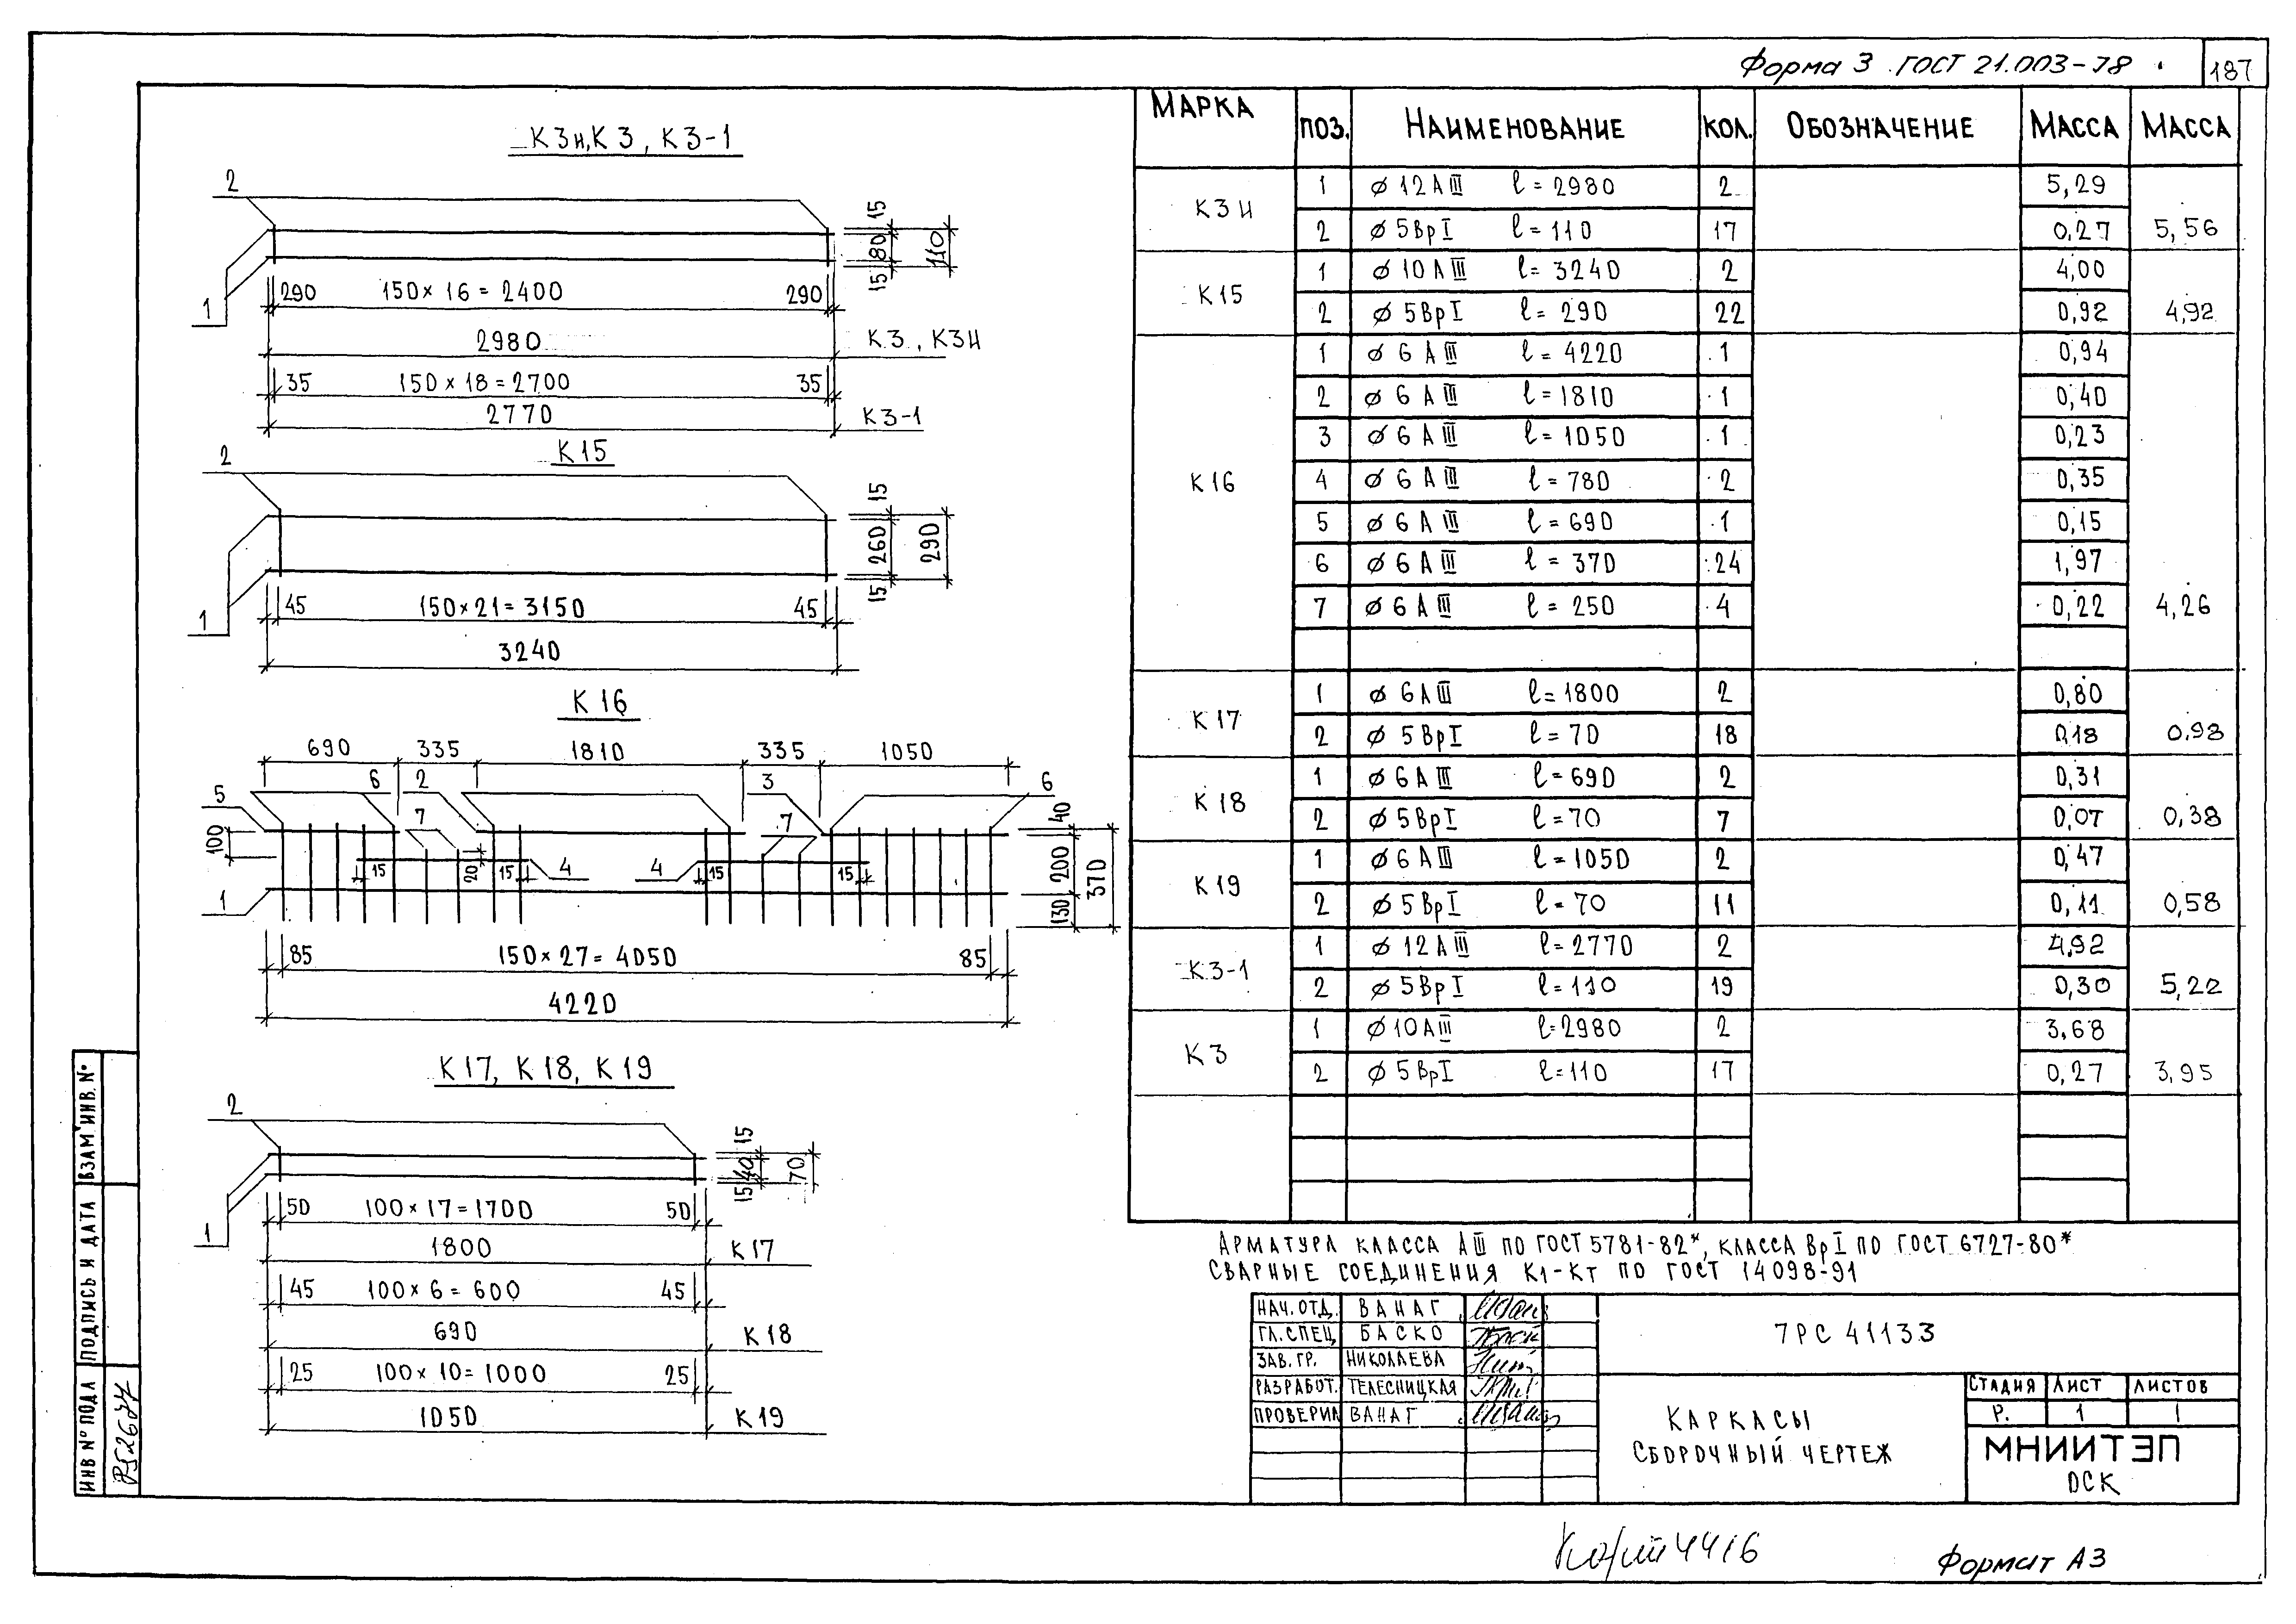 Форма 3 ГОСТ 21.003-78
187
К3н, К3, К3-1
2
1
15
80
15
110
290 150×16=2400 290
2980 К3, К3Н
35 150×18=2700 35
2770 К3-1
К15
2
1
15
260
15
290
45 150×21=3150 45
3240
К16
690 335 1810 335 1050
5 6 2 3 6
7 7
100
15 20 15 4 4 15 15
1
40
200
130
370
85 150×27=4050 85
4220
К17, К18, К19
2
1
15
40
15
70
50 100×17=1700 50
1800 К17
45 100×6=600 45
690 К18
25 100×10=1000 25
1050 К19
МАРКА ПОЗ. НАИМЕНОВАНИЕ КОЛ. ОБОЗНАЧЕНИЕ МАССА МАССА
К3Н
1 ø12АIII l=2980 2 5,29
2 ø5ВрI l=110 17 0,27 5,56
К15
1 ø10АIII l=3240 2 4,00
2 ø5ВрI l=290 22 0,92 4,92
К16
1 ø6АIII l=4220 1 0,94
2 ø6АIII l=1810 1 0,40
3 ø6АIII l=1050 1 0,23
4 ø6АIII l=780 2 0,35
5 ø6АIII l=690 1 0,15
6 ø6АIII l=370 24 1,97
7 ø6АIII l=250 4 0,22 4,26
К17
1 ø6АIII l=1800 2 0,80
2 ø5ВрI l=70 18 0,18 0,98
К18
1 ø6АIII l=690 2 0,31
2 ø5ВрI l=70 7 0,07 0,38
К19
1 ø6АIII l=1050 2 0,47
2 ø5ВрI l=70 11 0,11 0,58
К3-1
1 ø12АIII l=2770 2 4,92
2 ø5ВрI l=110 19 0,30 5,22
К3
1 ø10АIII l=2980 2 3,68
2 ø5ВрI l=110 17 0,27 3,95
АРМАТУРА КЛАССА АIII ПО ГОСТ 5781-82*, КЛАССА ВрI ПО ГОСТ 6727-80*
СВАРНЫЕ СОЕДИНЕНИЯ К1-Кт ПО ГОСТ 14098-91
НАЧ.ОТД. ВАНАГ
ГЛ.СПЕЦ БАСКО
ЗАВ.ГР. НИКОЛАЕВА
РАЗРАБОТ. ТЕЛЕСНИЦКАЯ
ПРОВЕРИЛ ВАНАГ
7РС 41133
КАРКАСЫ
СБОРОЧНЫЙ ЧЕРТЕЖ
СТАДИЯ ЛИСТ ЛИСТОВ
Р. 1 1
МНИИТЭП
ОСК
ВЗАМ.ИНВ.№
ПОДПИСЬ И ДАТА
ИНВ № ПОДЛ
4416
Формат А3